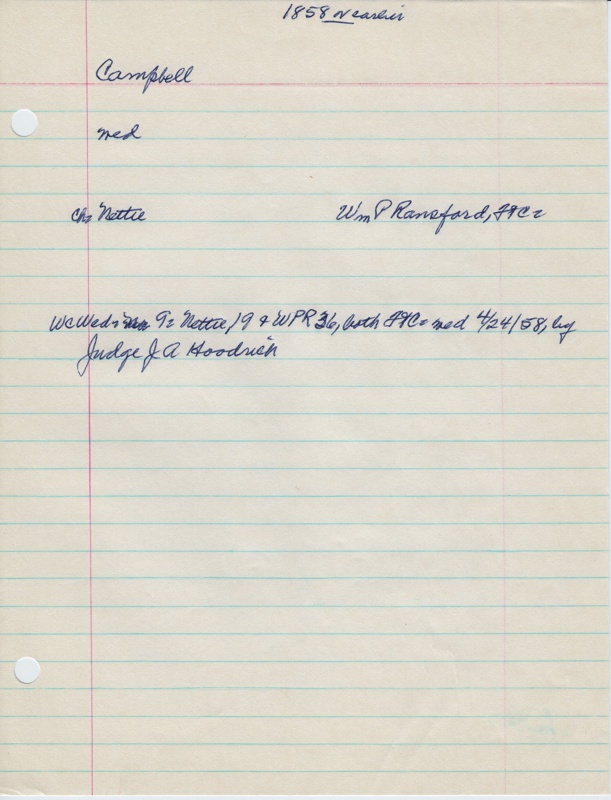 1858 or earlier
Campbell
med
ch: Nettie Wm P Ransford, FtC:
WC Weds: 9: Nettie, 19 & WPR 36, both FtC: med 4/24/58, by
Judge J A Hoodrich